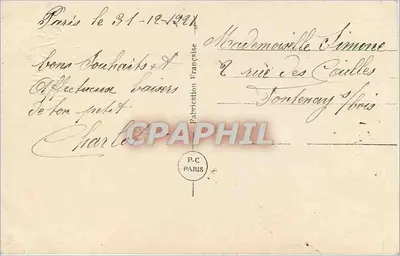 Paris le 31-12-192
bons Souhaits et
Affectueux baisers
de ton petit
Charlot
Fabrication Française
P-C
PARIS
Mademoiselle Simone
2 rue des
Fontenay s/bois
CPAPHIL